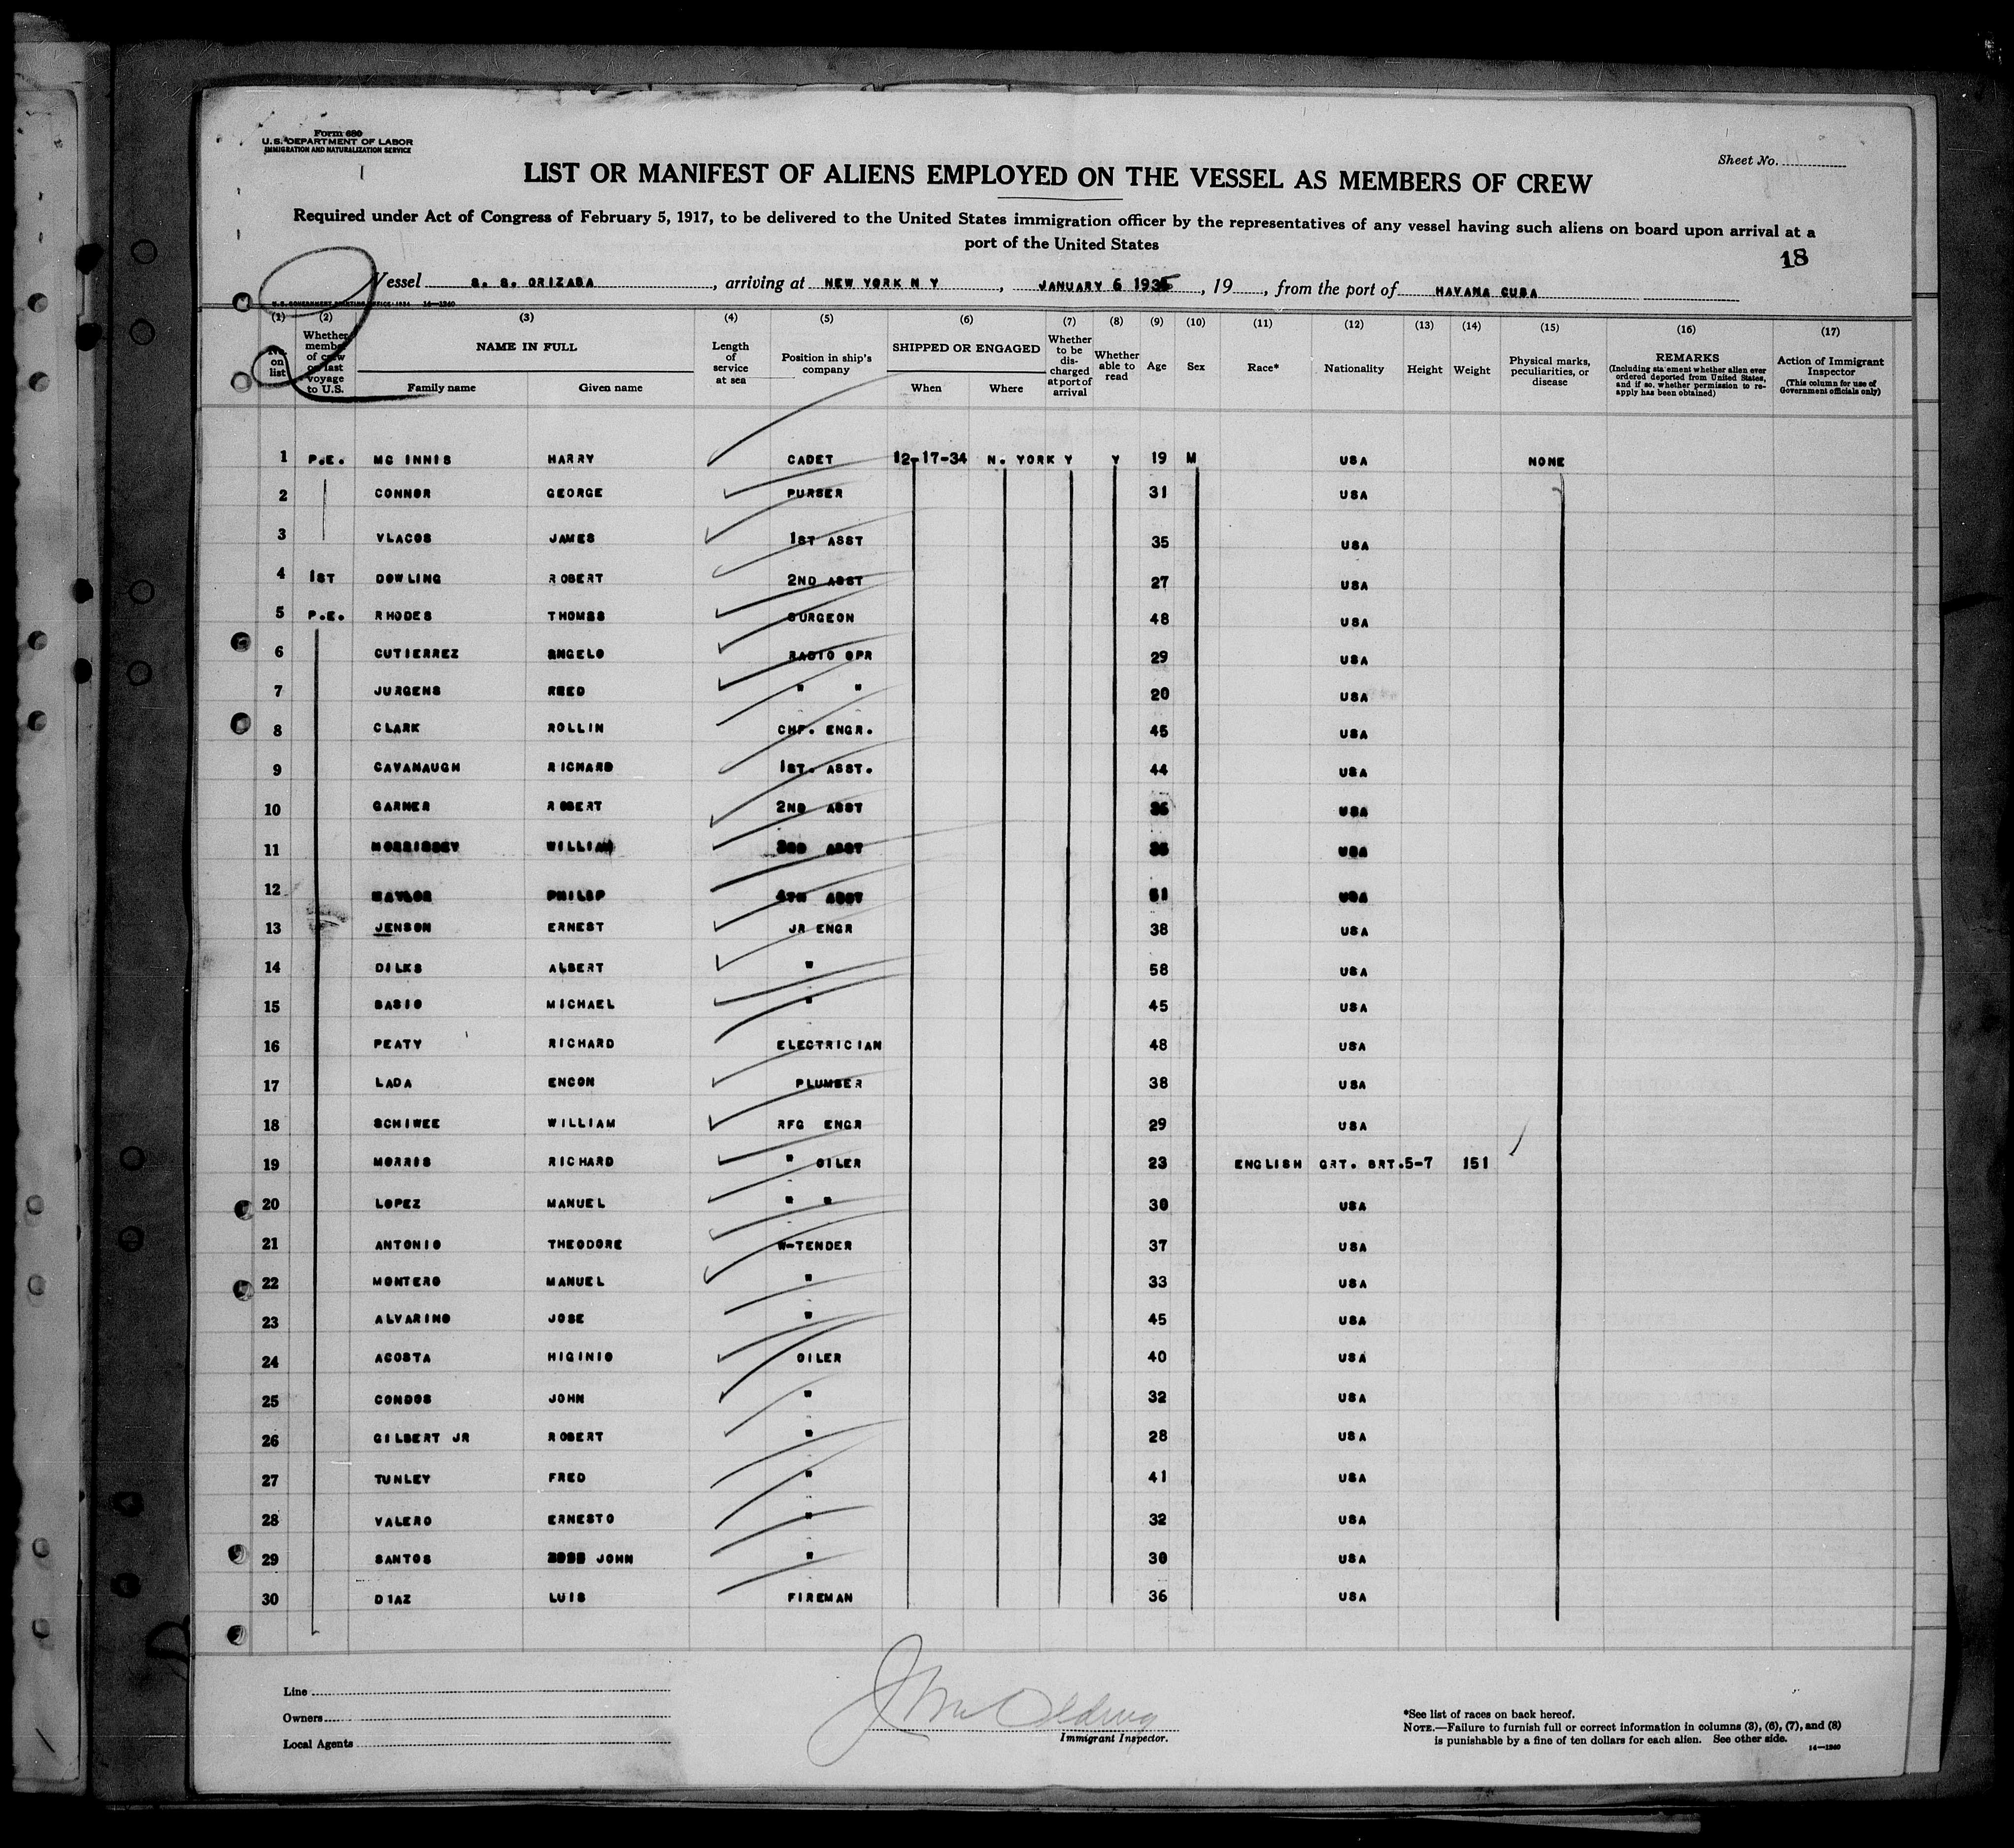 Form 680
U.S. DEPARTMENT OF LABOR
IMMIGRATION AND NATURALIZATION SERVICE
Sheet No.
LIST OR MANIFEST OF ALIENS EMPLOYED ON THE VESSEL AS MEMBERS OF CREW
Required under Act of Congress of February 5, 1917, to be delivered to the United States immigration officer by the representatives of any vessel having such aliens on board upon arrival at a
port of the United States
18
Vessel S. S. ORIZABA, arriving at NEW YORK N Y, JANUARY 6 1935, 19, from the port of HAVANA CUBA
U.S. GOVERNMENT PRINTING OFFICE: 1934 14—1240
(1) (2) (3) (4) (5) (6) (7) (8) (9) (10) (11) (12) (13) (14) (15) (16) (17)
No. on list
Whether member of crew on last voyage to U.S.
NAME IN FULL
Family name Given name
Length of service at sea
Position in ship's company
SHIPPED OR ENGAGED
When Where
Whether to be discharged at port of arrival
Whether able to read
Age Sex Race* Nationality Height Weight
Physical marks, peculiarities, or disease
REMARKS
(Including statement whether alien ever ordered deported from United States, and if so, whether permission to reapply has been obtained)
Action of Immigrant Inspector
(This column for use of Government officials only)
1 P.E. MC INNIS HARRY CADET 12-17-34 N. YORK Y Y 19 M USA NONE
2 CONNOR GEORGE PURSER 31 USA
3 VLACOS JAMES 1ST ASST 35 USA
4 1ST DOWLING ROBERT 2ND ASST 27 USA
5 P.E. RHODES THOMSS SURGEON 48 USA
6 GUTIERREZ ANGELO RADIO OPR 29 USA
7 JURGENS REED " " 20 USA
8 CLARK ROLLIN CHF. ENGR. 45 USA
9 CAVANAUGH RICHARD 1ST. ASST. 44 USA
10 GARNER ROBERT 2ND ASST USA
11 MORRISSEY WILLIAM 3RD ASST USA
12 PHILIP 4TH ASST 51 USA
13 JENSON ERNEST JR ENGR 38 USA
14 DILKS ALBERT " 58 USA
15 BASIO MICHAEL " 45 USA
16 PEATY RICHARD ELECTRICIAN 48 USA
17 LADA ENCON PLUMBER 38 USA
18 SCHIWEE WILLIAM RFG ENGR 29 USA
19 MORRIS RICHARD " OILER 23 ENGLISH GRT. BRT. 5-7 151
20 LOPEZ MANUEL " " 30 USA
21 ANTONIO THEODORE W-TENDER 37 USA
22 MONTERO MANUEL " 33 USA
23 ALVARINO JOSE " 45 USA
24 ACOSTA HIGINIO OILER 40 USA
25 CONDOS JOHN " 32 USA
26 GILBERT JR ROBERT " 28 USA
27 TUNLEY FRED " 41 USA
28 VALERO ERNESTO " 32 USA
29 SANTOS JOHN " 30 USA
30 DIAZ LUIS FIREMAN 36 USA
Line
Owners
Local Agents
Immigrant Inspector.
*See list of races on back hereof.
NOTE.—Failure to furnish full or correct information in columns (3), (6), (7), and (8)
is punishable by a fine of ten dollars for each alien. See other side.
14—1240